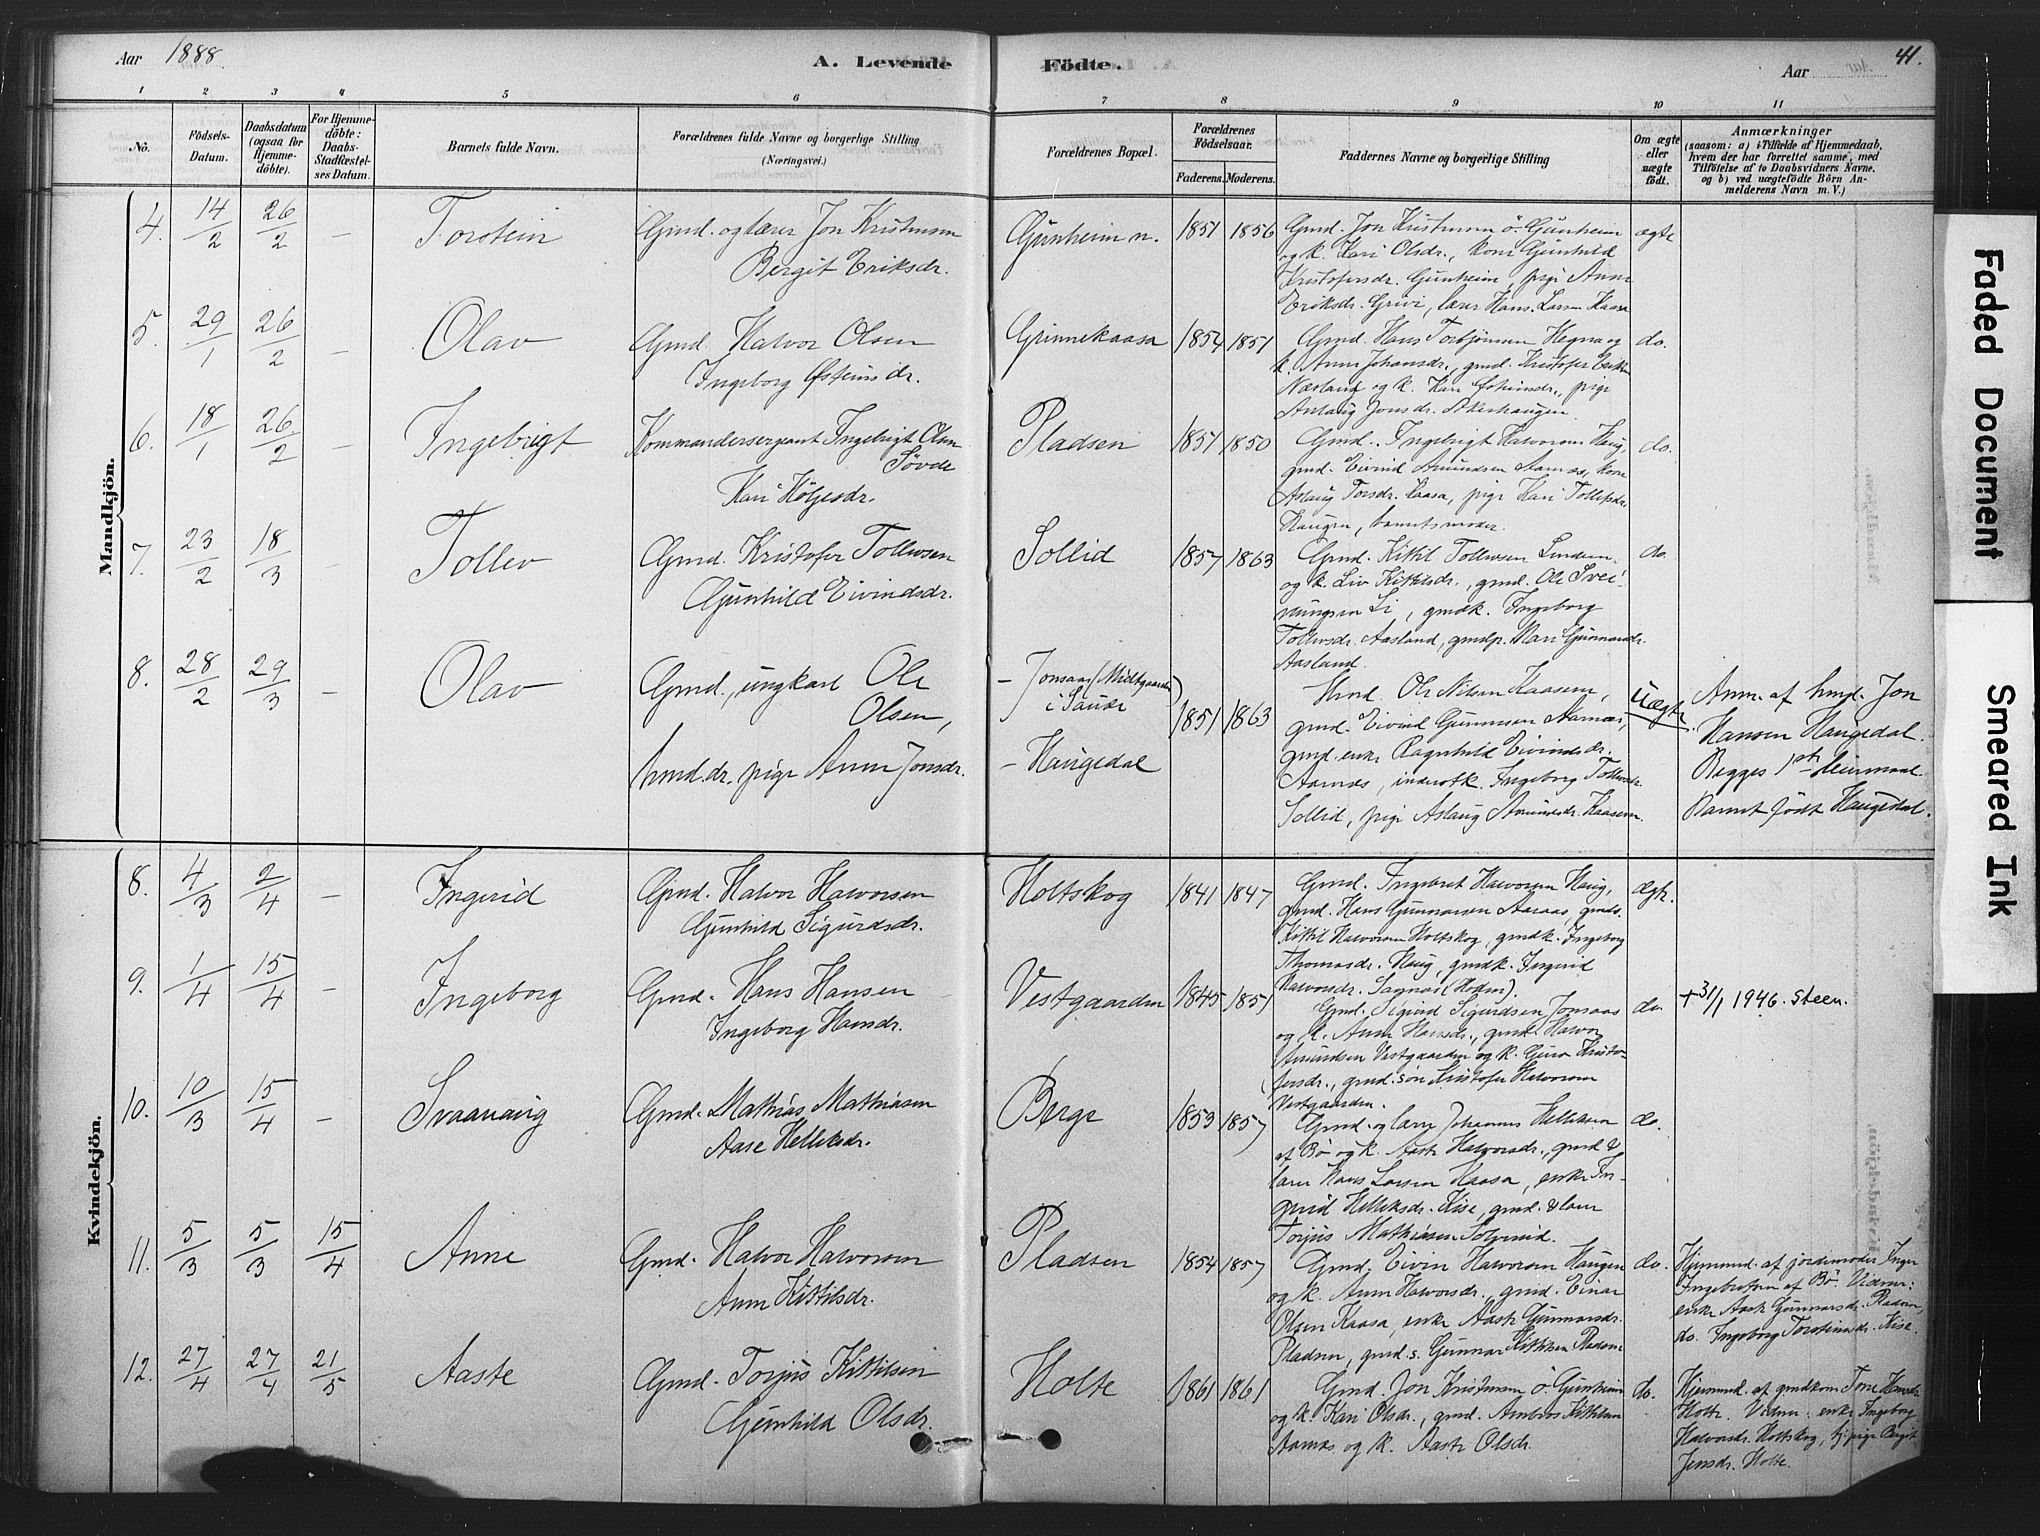 Aar 1888.
A. Levende Födte.
Aar
41.
1 2 3 4 5 6 7 8 9 10 11
No.
Födsels-Datum.
Daabsdatum (ogsaa for Hjemme-döbte).
For Hjemme-döbte: Daabs-Stadfæstel-ses Datum.
Barnets fulde Navn.
Forældrenes fulde Navne og borgerlige Stilling (Næringsvei.)
Forældrenes Bopæl.
Forældrenes Födselsaar.
Faderens. Moderens.
Faddernes Navne og borgerlige Stilling
Om ægte eller uægte födt.
Anmærkninger
(saasom: a) i Tilfælde af Hjemmedaab, hvem der har forrettet samme, med Tilföielse af to Daabsvidners Navne. og b) ved uægtefödte Börn An-melderens Navn m. V.)
Mandkjön.
4. 14/2 26/2 – Torstein
Gmd. og lærer Jon Kristensen
Bergit Eriksdr.
Gunheim n. 1851 1856
Gmd. Jon Kristensen ö. Gunheim
og k. Kari Olsdr., kone Gunhild
Kristofersdr. Gunheim, pige Anne
Eriksdr. Grivi, lærer Hans Larsen Kaasa
ægte
5. 29/1 26/2 – Olav
Gmd. Halvor Olsen
Ingeborg Østeinsdr.
Grinnekaasa 1854 1851
Gmd. Hans Torbjörnsen Hegna og
k. Anne Johansdr., gmd. Kristofer
Næsland og k. Kari pige
Aslaug Jonsdr. Akerhaugen.
do.
6. 18/1 26/2 – Ingebrigt
Kommandersergeant Ingebrigt Olsen
Søvde
Kari Höljesdr.
Pladsen 1851 1850
Gmd. Ingebrigt Halvorsen Haug,
gmd. Eivind Amundsen Aarnæs, kone
Aslaug Torsdr. Kaasa, pige Kari Tollefsdr.
Haugen, barnets moder.
do.
7. 23/2 18/3 Tollev
Gmd. Kristofer Tollevsen
Gunhild Eivindsdr.
Sollid 1857 1863
Gmd. Kittil Tollevsen
og k. Liv Kittilsdr., gmd. Ole Svei-
nungsen Li, gmdk. Ingeborg
Tollevsdr. Aasland, gmdp. Kari Gunnarsdr.
Aasland.
do.
8. 28/2 29/3 – Olav
Gmd., ungkarl Ole
Olsen,
hmd.dr. pige Anne Jonsdr.
– Jonsaas (Midtgaarden)
i Sauar
– Haugedal
1851 1863
Hmd. Ole Nilsen Kaasene,
gmd. Eivind Gunnarsen Aarnæs,
gmd. enke Ragnhild Eivindsdr.
Aarnæs, inderstk. Ingeborg Tollevsdr.
Sollid, pige Aslaug Amundsdr. Kaasene.
Uægte.
Anm. af hmd. Jon
Hansen Haugedal.
Begges 1ste leiermaal.
Barnet født Haugedal.
Kvindekjön.
8. 4/3 2/4 – Ingerid
Gmd. Halvor Halvorsen
Gunhild Sigurdsdr.
Holtskog 1841 1847
Gmd. Ingebret Halvorsen Haug,
gmd. Hans Gunnarsen Aaraas, gmds.
Kittil Halvorsen Holtskog, gmdk. Ingeborg
Thomasdr. Haug, gmdk. Ingerid
Halvorsdr. Sagnæs (Moen).
ægte.
9. 1/4 15/4 – Ingeborg
Gmd. Hans Hansen
Ingeborg Hansdr.
Vestgaarden 1845 1851
Gmd. Sigurd Sigurdsen Jonsaas
og k. Anne Hansdr., gmd. Halvor
Amundsen Vestgaarden og k. Guro Kristo-
fersdr., gmd. søn Kristofer Halvorsen
Vestgaarden.
do.
+ 31/1 1946. Steen.
10. 10/3 15/4 – Svaanaug
Gmd. Mathias Mathiasen
Aase Helleksdr.
Berge 1853 1857
Gmd. og lærer Johannes Helleksen
af Bø og k. Aaste Halvorsdr., gmd &
lærer Hans Larsen Kaasa, enke In-
gerid Helleksdr. Kise, gmd. & lærer
Torjus Mathiasen
do.
11. 5/3 5/3 15/4 Anne
Gmd. Halvor Halvorsen
Anne Kittilsdr.
Pladsen 1854 1857
Gmd. Eivin Halvorsen Haugen
og k. Anne Halvorsdr., gmd. Einar
Olsen Kaasa, enke Aaste Gunnarsdr.
Pladsen, gmd. s. Gunnar Kittilsen Pladsen
do.
Hjemmed. af jordemoder Inger
Ingebretsen af Bø. Vidner:
enke Aaste Gunnarsdr. Pladsen,
do. Ingeborg Torsteinsdr. Kise.
12. 27/4 27/4 21/5 Aaste
Gmd. Torjus Kittilsen
Gunhild Olsdr.
Holte 1861 1861
Gmd. Jon Kristensen ö. Gunheim
og k. Kari Olsdr., gmd. Ambros Kittilsen
Aarnæs og k. Aaste Olsdr.
do.
Hjemmed. af gmdkone Tone Hansdr.
Holte. Vidner: enke Ingeborg
Halvorsdr. Holtskog, pige Bergit
Jensdr. Holte.
Faded Document
Smeared Ink